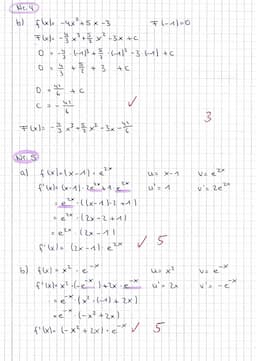 Nr. 4
b) f(x) = -4x² + 5x - 3    F(-1) = 0
F(x) = -4/3 x³ + 5/2 x² - 3x + c
0 = -4/3 · (-1)³ + 5/2 · (-1)² - 3 · (-1) + c
0 = 4/3 + 5/2 + 3 + c
0 = 41/6 + c
c = -41/6 ✓
3
F(x) = -4/3 x³ + 5/2 x² - 3x - 41/6
Nr. 5
a) f(x) = (x-1) · e^2x    u = x-1    v = e^2x
f'(x) = (x-1) · 2e^2x + 1 · e^2x    u' = 1    v' = 2e^2x
= e^2x · ((x-1) · 2 + 1)
= e^2x · (2x - 2 + 1)
= e^2x · (2x - 1)
f'(x) = (2x - 1) · e^2x ✓ 5
b) f(x) = x² · e^-x    u = x²    v = e^-x
f'(x) = x² · (-e^-x) + 2x · e^-x    u' = 2x    v' = -e^-x
= e^-x · (x² · (-1) + 2x)
= e^-x · (-x² + 2x)
f'(x) = (-x² + 2x) · e^-x ✓ 5